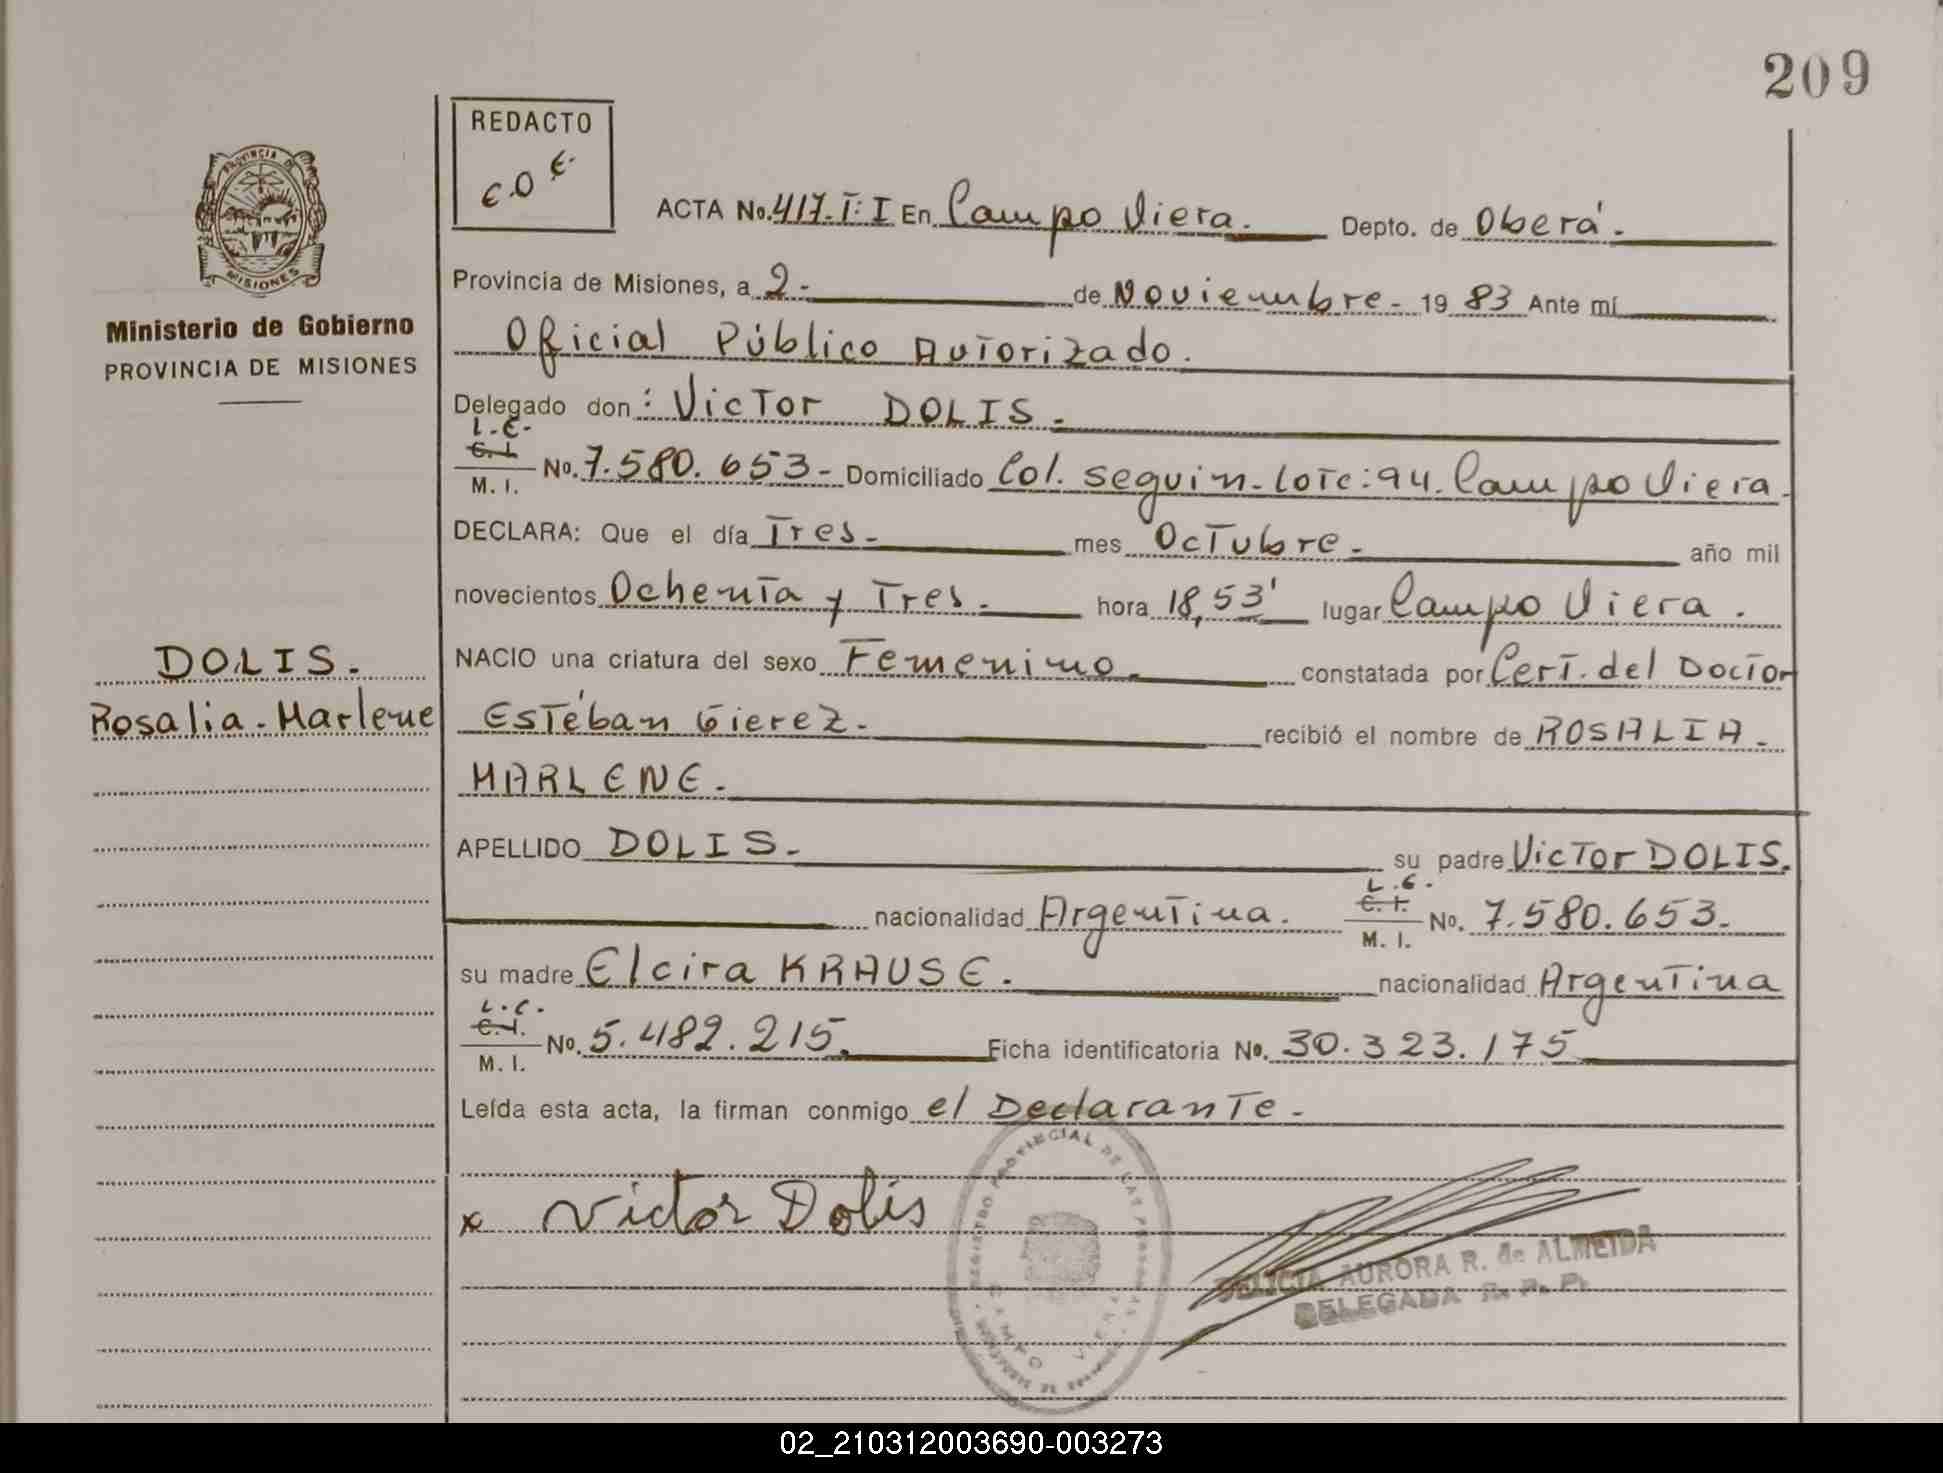 209
REDACTO
E.O E.
PROVINCIA DE
MISIONES
Ministerio de Gobierno
PROVINCIA DE MISIONES
DOLIS.
Rosalia - Marlene
ACTA No. 417. T: I En Campo Viera. Depto. de Oberá.
Provincia de Misiones, a 2 - de Noviembre - 19 83 Ante mí
Oficial Público Autorizado.
Delegado don : Victor DOLIS.
L.E.
C.I.
M. I. No. 7.580.653 - Domiciliado Col. Seguin - Lote: 94. Campo Viera.
DECLARA: Que el día Tres - mes Octubre - año mil
novecientos Ochenta y Tres. hora 18,53' lugar Campo Viera.
NACIO una criatura del sexo Femenino. constatada por Cert. del Doctor
Estéban Gierez. recibió el nombre de ROSALIA.
MARLENE.
APELLIDO DOLIS. su padre Victor DOLIS.
nacionalidad Argentina. L.E. C.I. M. I. No. 7.580.653.
su madre Elcira KRAUSE. nacionalidad Argentina
L.C.
C.I.
M. I. No. 5.482.215. Ficha identificatoria No. 30.323.175
Leída esta acta, la firman conmigo el Declarante.
x Victor Dolis
REGISTRO PROVINCIAL DE LAS PERSONAS
CAMPO VIERA
DELICIA AURORA R. de ALMEIDA
DELEGADA R. P. P.
02_210312003690-003273